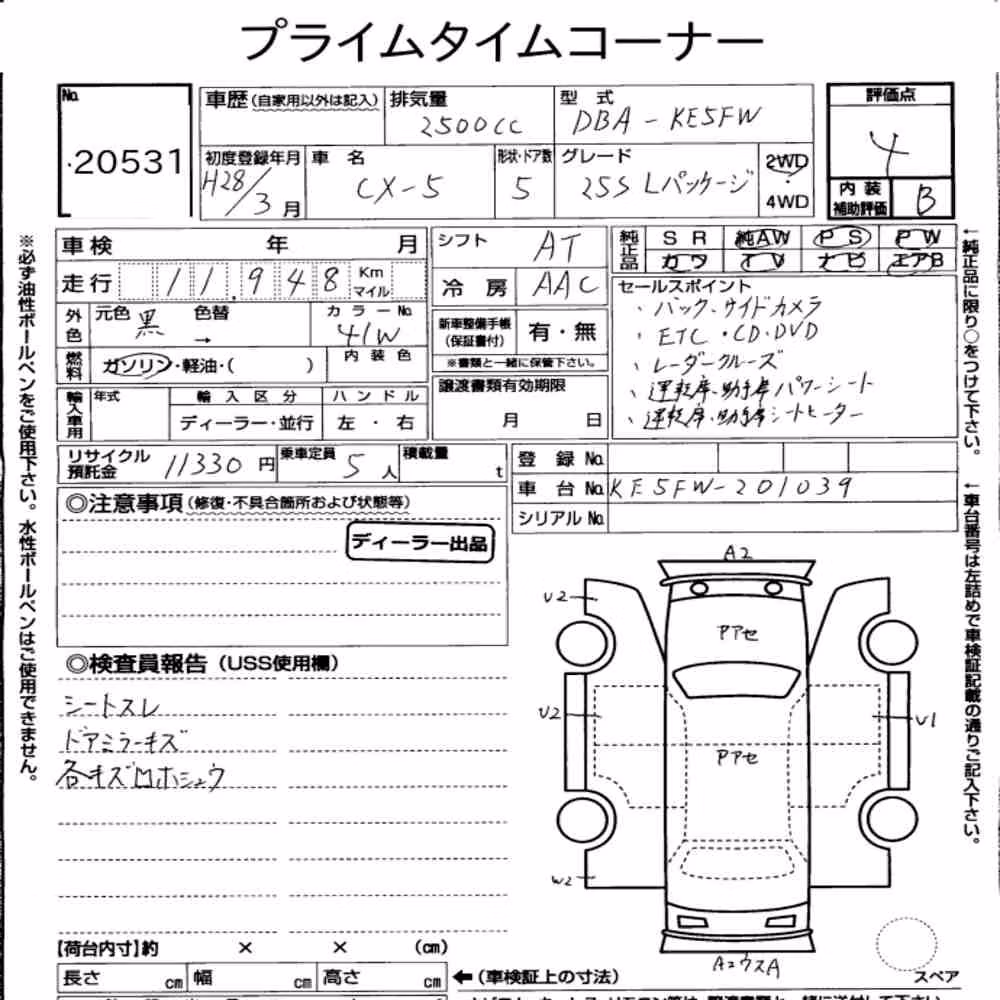 プライムタイムコーナー
No. ・20531
車歴(自家用以外は記入) 排気量 2500cc 型式 DBA-KE5FW
評価点 4
初度登録年月 H28/3月 車名 CX-5 形状・ドア数 5 グレード 25S Lパッケージ 2WD・4WD
内装補助評価 B
※必ず油性ボールペンをご使用下さい。水性ボールペンはご使用できません。
車検 年 月
走行 11.948 Km マイル
外色 元色 黒 色替 → カラーNo. 41W
燃料 ガソリン・軽油・( ) 内装色
輸入車用 年式 輸入区分 ディーラー・並行 ハンドル 左・右
シフト AT
冷房 AAC
新車整備手帳(保証書付) 有・無
※書類と一緒に保管下さい。
譲渡書類有効期限 月 日
純正品 SR 純AW PS PW
カワ TV ナビ エアB
セールスポイント
、バック、サイドカメラ
、ETC・CD・DVD
、レーダークルーズ
、運転席・助手席パワーシート
、運転席・助手席シートヒーター
←純正品に限り○をつけて下さい。
リサイクル預託金 11330円 乗車定員 5人 積載量 t
登録No.
車台No. KE5FW-201039
シリアルNo.
←車台番号は左詰めで車検証記載の通りご記入下さい。
◎注意事項(修復・不具合箇所および状態等)
ディーラー出品
◎検査員報告(USS使用欄)
シートスレ
ドアミラーキズ
各キズ凹ホシュウ
A2
U2
アアセ
U2
U1
アアセ
W2
AユウスA
スペア
【荷台内寸】約 × × (cm)
長さ cm 幅 cm 高さ cm ←(車検証上の寸法)